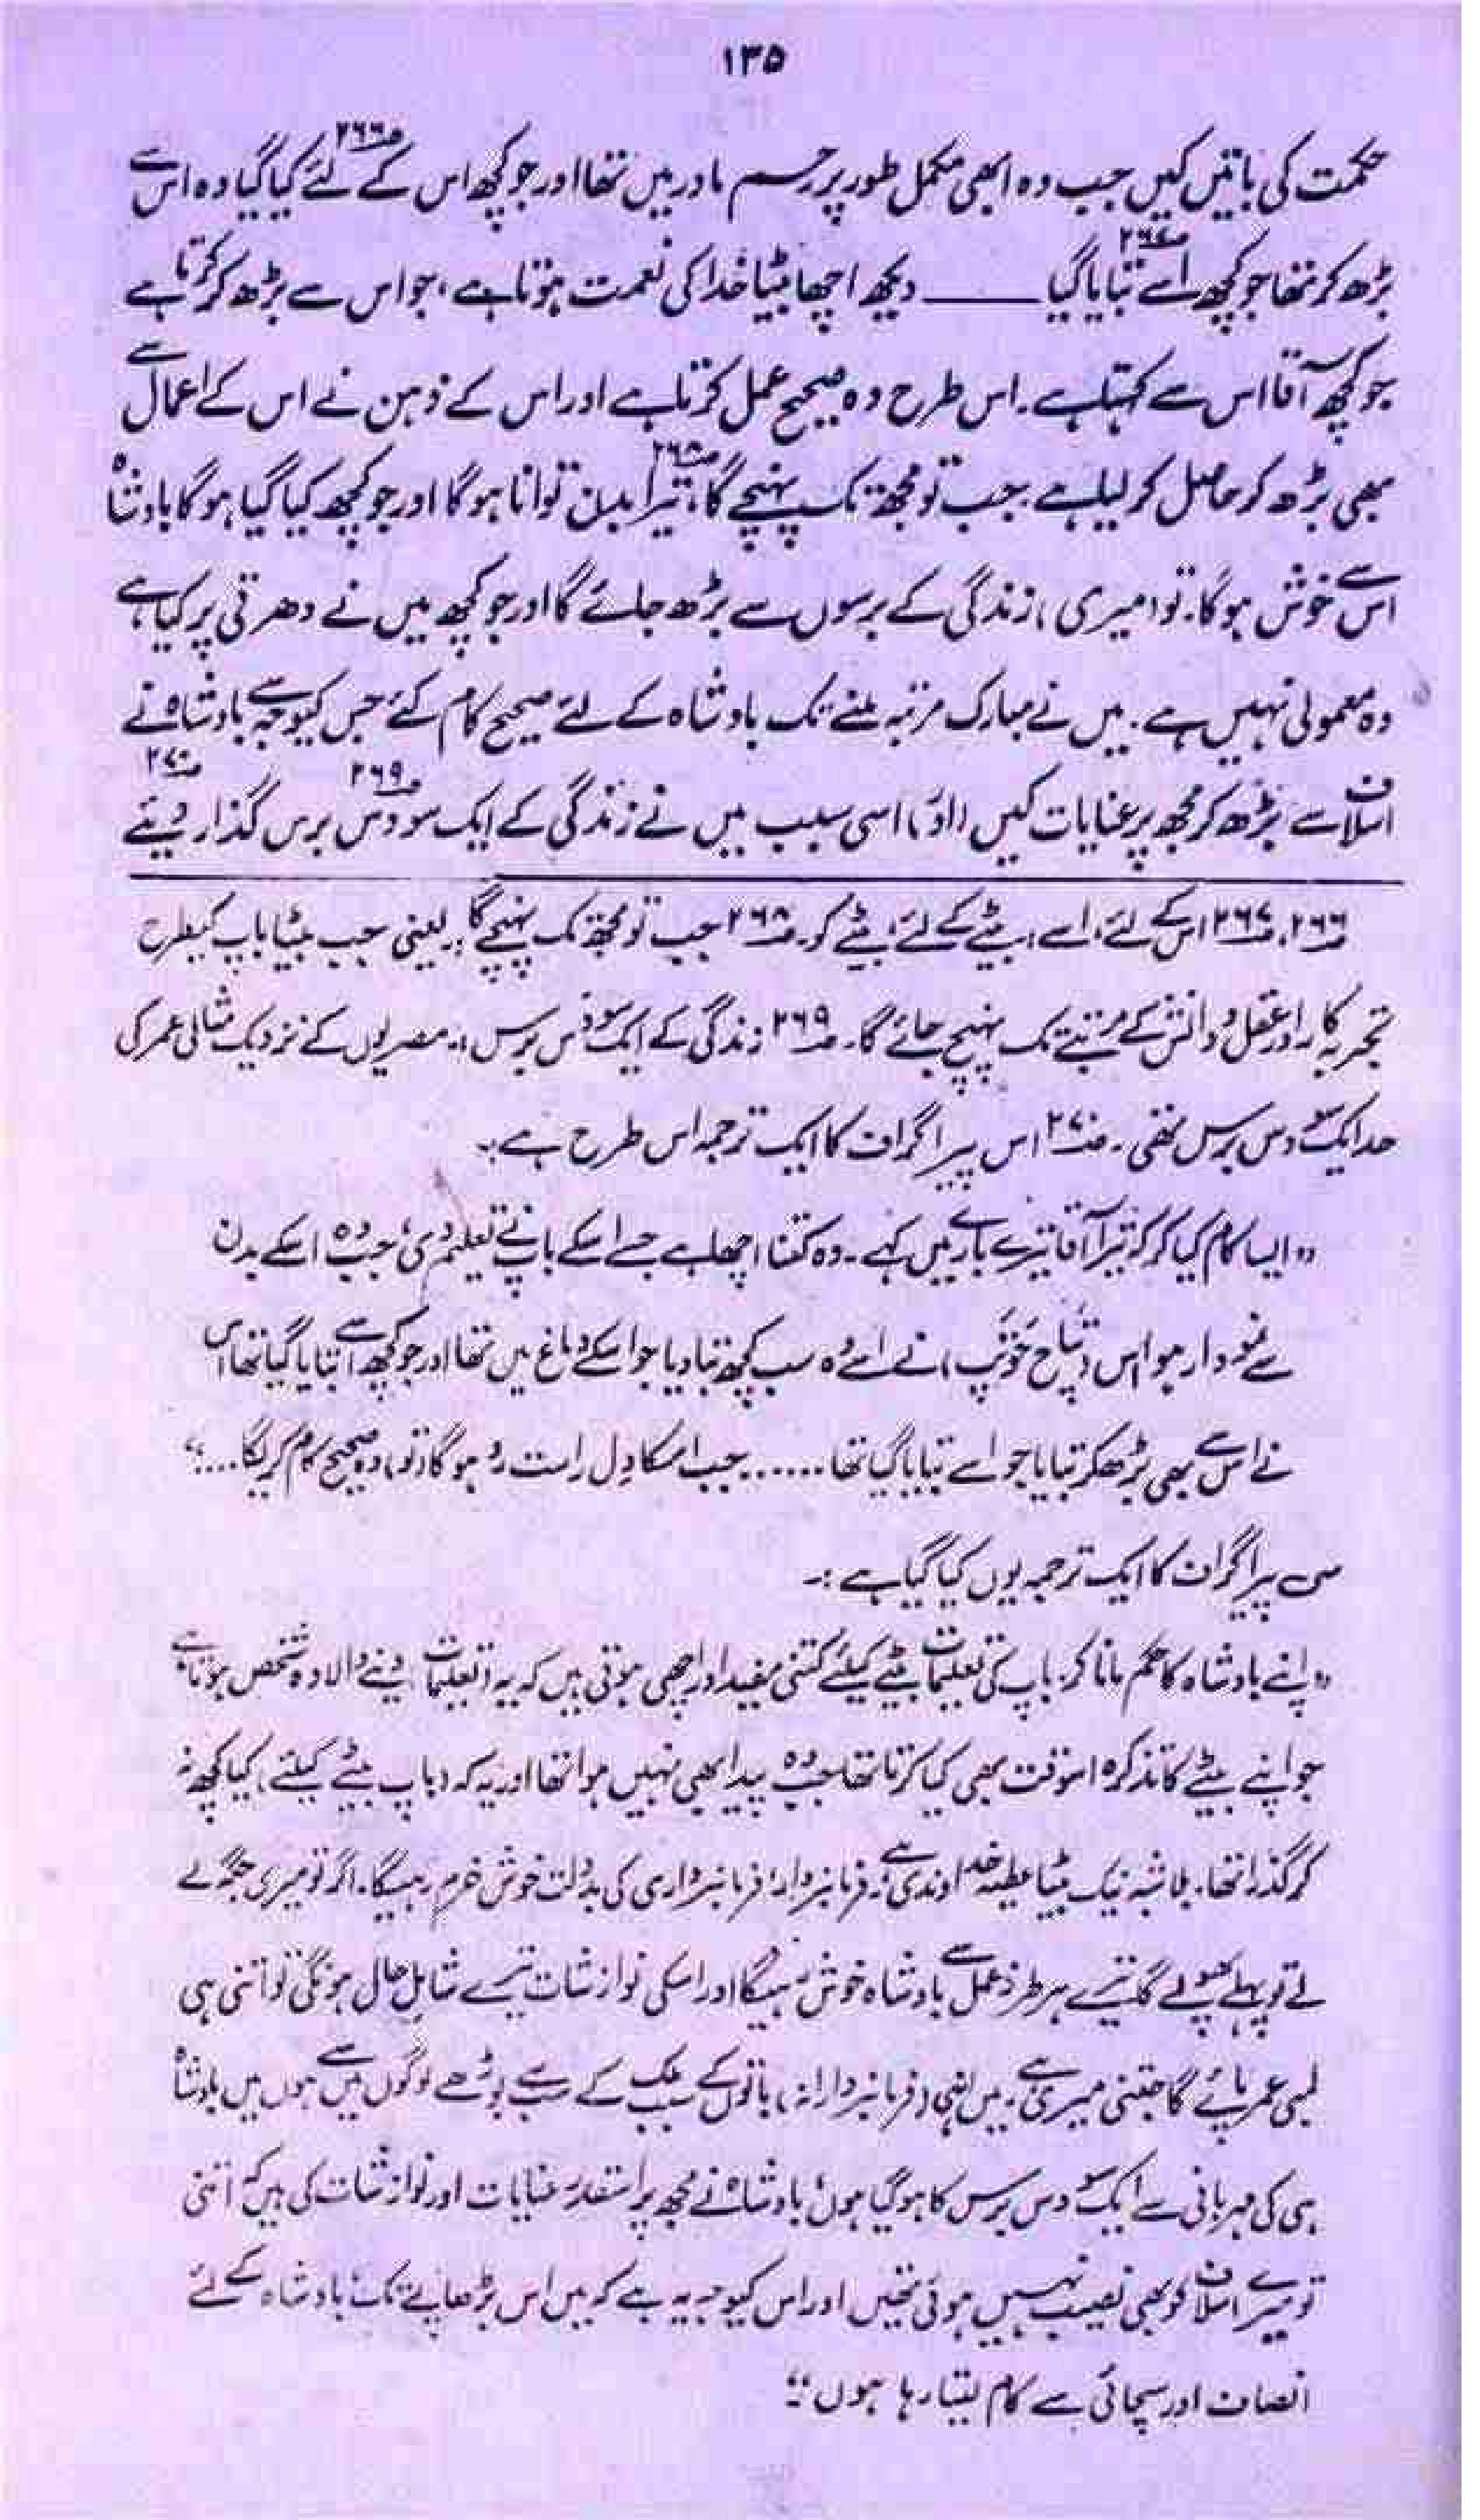 ۱۳۵
حکمت کی باتیں کیں جب وہ ابھی مکمل طور پر رحم مادر میں تھا اور جو کچھ اس کے ۲۶۶ لئے کیا گیا وہ اس سے
بڑھ کر تھا جو کچھ اسے ۲۶۷ بتایا گیا ——— دیکھ اچھا بیٹا خدا کی نعمت ہوتا ہے، جو اس سے بڑھ کر کرتا ہے
جو کچھ آقا اس سے کہتا ہے۔ اس طرح وہ صحیح عمل کرتا ہے اور اس کے ذہن نے اس کے اعمال سے
بھی بڑھ کر حاصل کر لیا ہے جب تو مجھ تک پہنچے گا، ۲۶۸ تیرا بدن توانا ہوگا اور جو کچھ کیا گیا ہوگا بادشاہ
اس سے خوش ہوگا۔ تو (میری) زندگی کے برسوں سے بڑھ جائے گا اور جو کچھ میں نے دھرتی پر کیا ہے
وہ معمولی نہیں ہے۔ میں نے مبارک مرتبہ ملنے تک بادشاہ کے لئے صحیح کام کئے جس کیوجہ سے بادشاہ نے
اسلاف سے بڑھ کر مجھ پر عنایات کیں (اور) اسی سبب میں نے زندگی کے ایک سو دس ۲۶۹ برس گذار دیئے ۲۷۰
۲۶۶، ۲۶۷ اس کے لئے، اسے، بیٹے کے لئے، بیٹے کو۔ ۲۶۸ جب تو مجھ تک پہنچے گا:۔ یعنی جب بیٹا باپ کیطرح
تجربہ کار اور عقل و دانش کے مرتبے تک پہنچ جائے گا۔ ۲۶۹ زندگی کے ایک سو دس برس:۔ مصریوں کے نزدیک مثالی عمر کی
حد ایک سو دس برس تھی۔ ۲۷۰ اس پیراگراف کا ایک ترجمہ اس طرح ہے:۔
"ایسا کام کیا کر کہ تیرا آقا تیرے بارے میں کہے۔ وہ کتنا اچھا ہے جسے اسکے باپ نے تعلیم دی، جب وہ اسکے بدن
سے نمودار ہوا اس (پتاح حوتپ) نے اسے وہ سب کچھ بتا دیا جو اسکے دماغ میں تھا اور جو کچھ اسے بتایا گیا تھا اس
نے اس سے بھی بڑھکر بتایا جو اسے بتایا گیا تھا...... جب اسکا دل راست رو ہوگا (تو) وہ صحیح کام کریگا....."
سی پیراگراف کا ایک ترجمہ یوں کیا گیا ہے:۔
"اپنے بادشاہ کا حکم مانا کر، باپ کی تعلیمات بیٹے کیلئے کتنی مفید اور اچھی ہوتی ہیں کہ یہ (تعلیمات) دینے والا وہ شخص ہوتا ہے
جو اپنے بیٹے کا تذکرہ اسوقت بھی کیا کرتا تھا جب وہ پیدا بھی نہیں ہوا تھا اور یہ کہ (باپ بیٹے کیلئے) کیا کچھ نہ
کر گذرا تھا۔ بلاشبہ نیک بیٹا عطیۂ خداوندی ہے۔ فرمانبردار، فرمانبرداری کی بدولت خوش خرم رہیگا۔ اگر تو میری جگہ لے
لے تو پھلے پھولے گا تیرے ہر طرز عمل سے بادشاہ خوش رہیگا اور اسکی نوازشات تیرے شاملِ حال ہونگی تو اتنی ہی
لمبی عمر پائے گا جتنی میری ہے۔ میں انہی (فرمانبردارانہ) باتوں کے سبب ملک کے سب سے بوڑھے لوگوں میں سے ہوں میں بادشاہ
ہی کی مہربانی سے ایک سو دس برس کا ہو گیا ہوں، بادشاہ نے مجھ پر اسقدر عنایات اور نوازشات کی ہیں کہ اتنی
تو میرے اسلاف کو بھی نصیب نہیں ہوئی تھیں اور اس کیوجہ یہ ہے کہ میں اس بڑھاپے تک بادشاہ کے لئے
انصاف اور سچائی سے کام لیتا رہا ہوں"